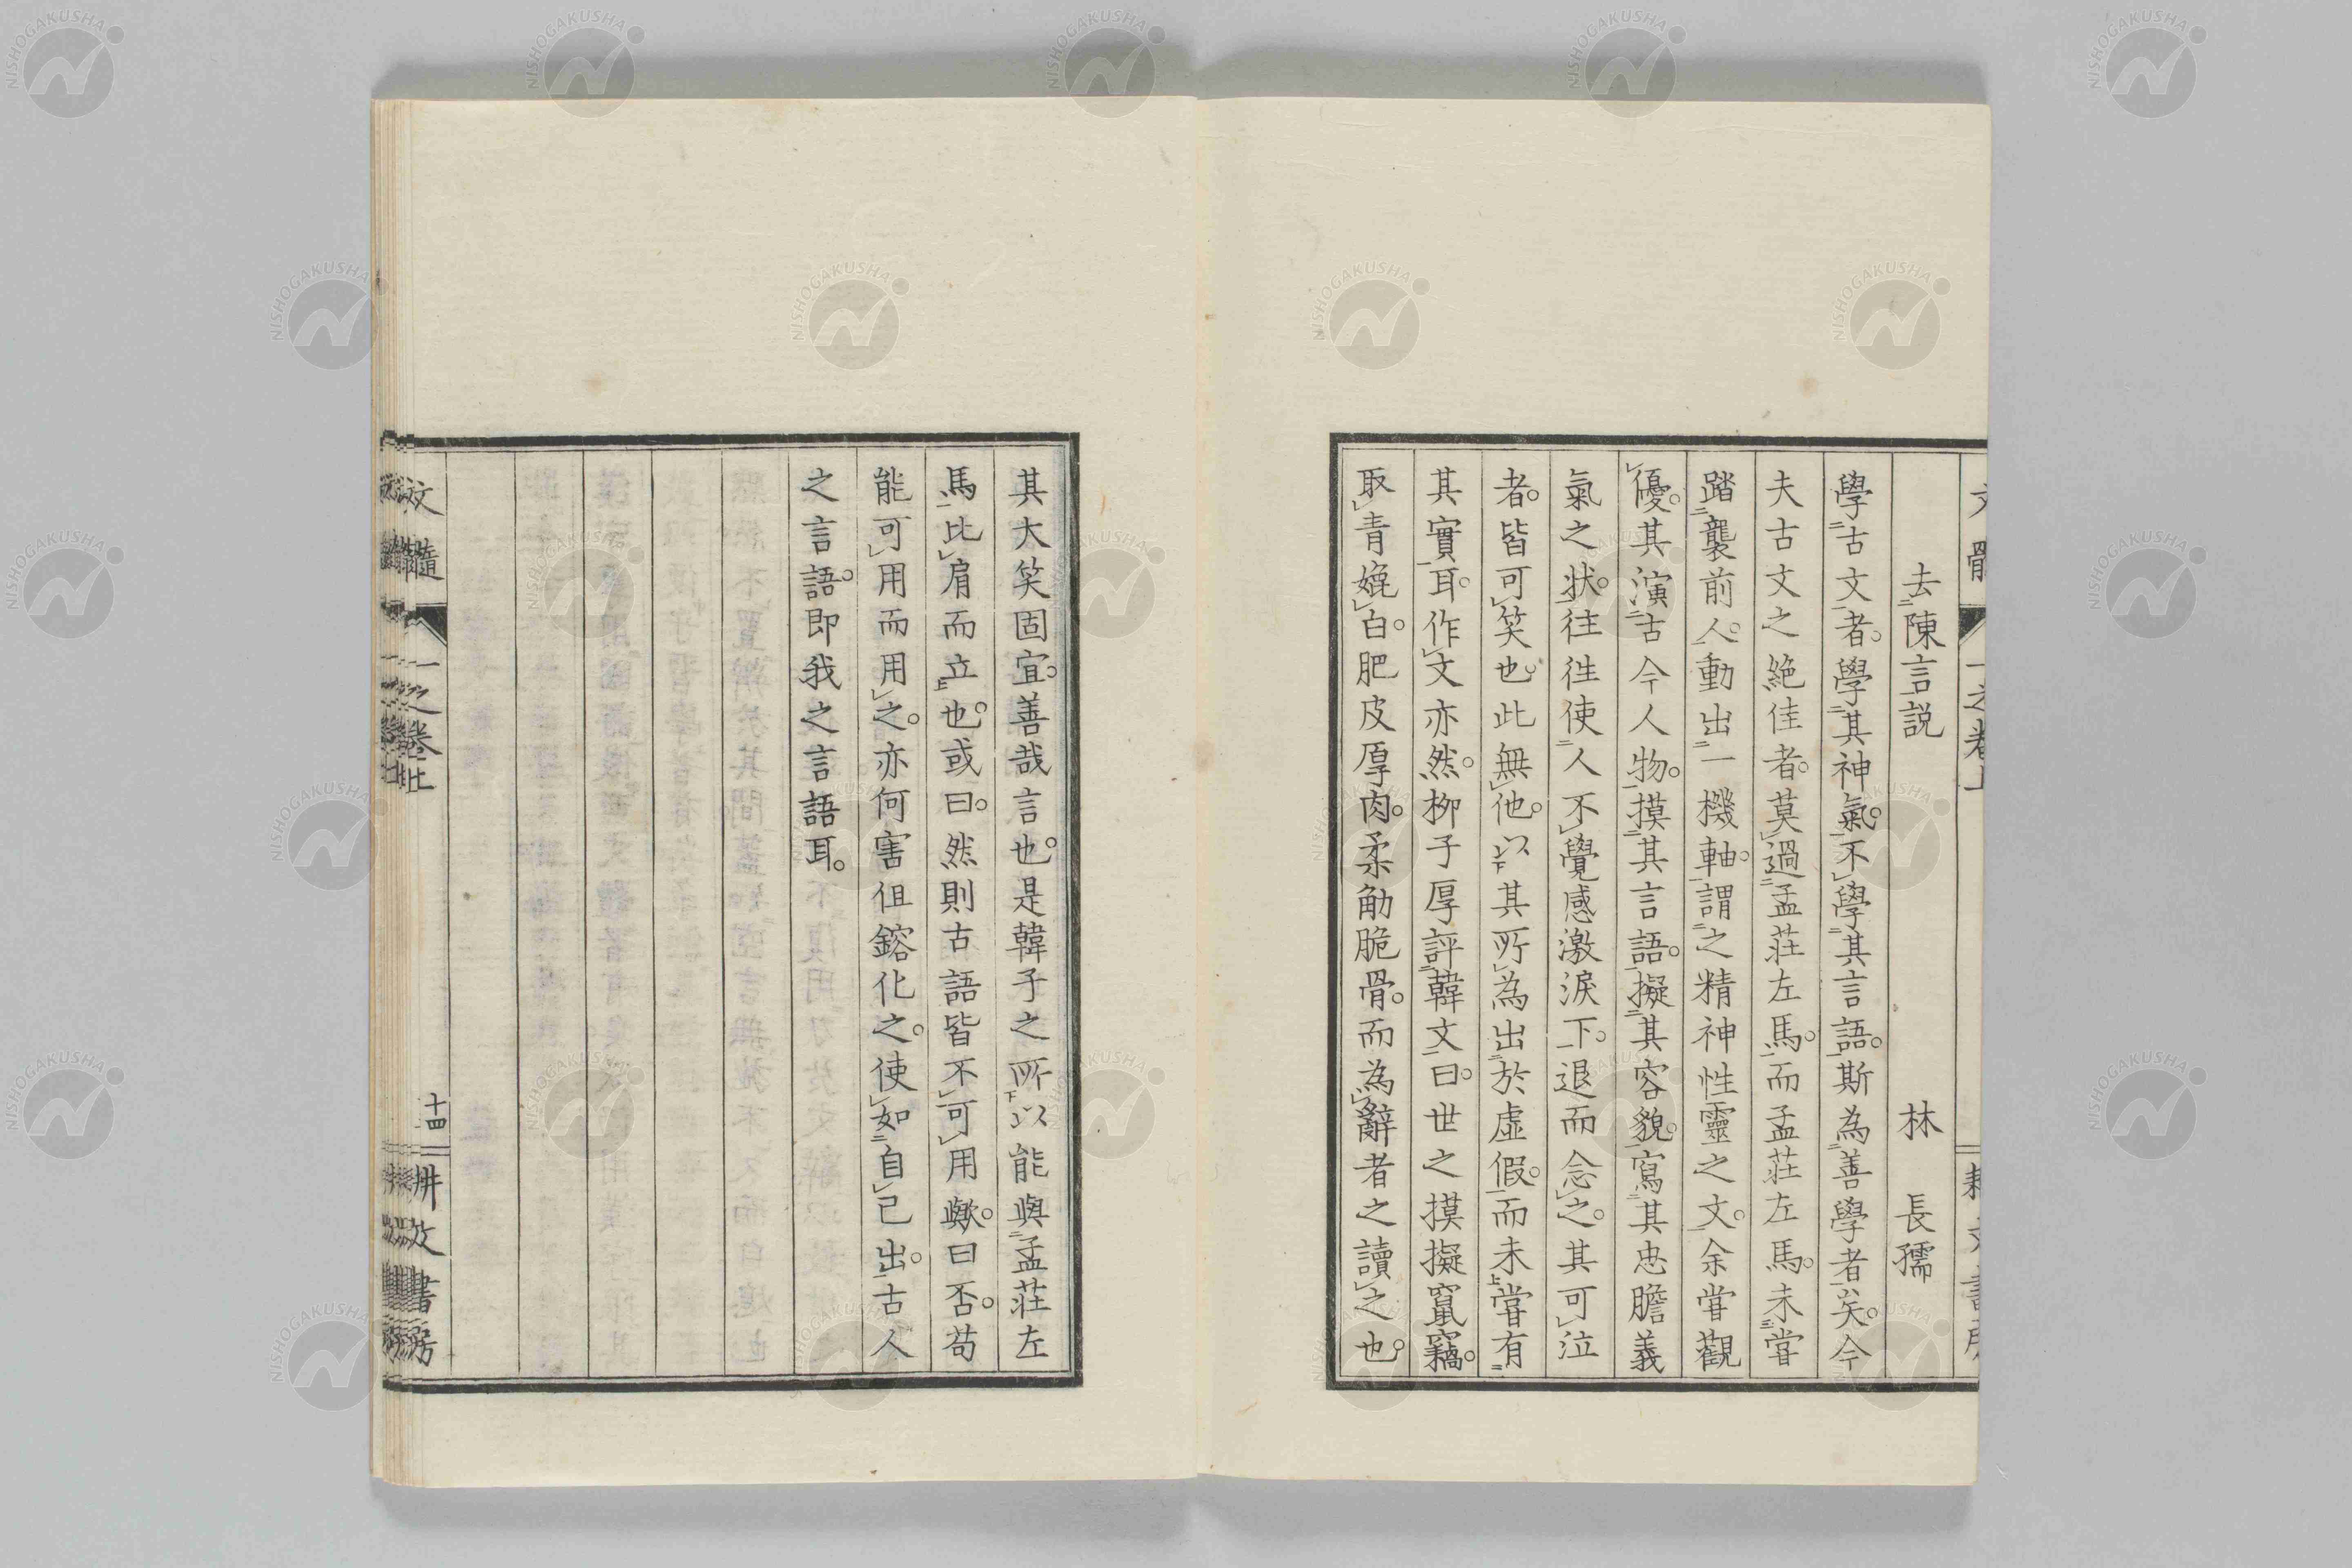 去陳言説 林 長孺
學古文者。學其神氣。不學其言語。斯為善學者矣。今
夫古文之絶佳者。莫過孟莊左馬。而孟莊左馬。未嘗
踏襲前人。動出一機軸。謂之精神性靈之文。余嘗觀
優。其演古今人物。摸其言語。擬其容貌。寫其忠膽義
氣之状。往往使人不覺感激淚下。退而念之。其可泣
者。皆可笑也。此無他。以其所為出於虛假。而未嘗有
其實耳。作文亦然。柳子厚評韓文曰。世之摸擬竄竊。
取青媲白。肥皮厚肉。柔觔脆骨。而為辭者之讀之也。
其大笑固宜。善哉言也。是韓子之所以能與孟莊左
馬比肩而立也。或曰。然則古語皆不可用歟。曰否。苟
能可用而用之。亦何害但鎔化之。使如自己出。古人
之言語。即我之言語耳。
文髓 一之卷上 十四 耕文書房